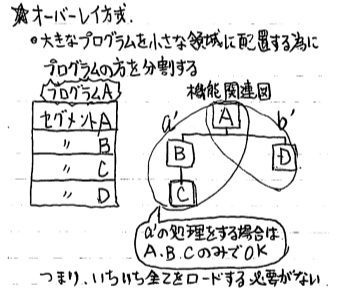 ☆オーバーレイ方式.
○大きなプログラムを小さな領域に配置する為に
プログラムの方を分割する
プログラムA
セグメントA
〃 B
〃 C
〃 D
機能関連図
a' A b'
B D
C
a'の処理をする場合は
A、B、CのみでOK
つまり、いちいち全てをロードする必要がない